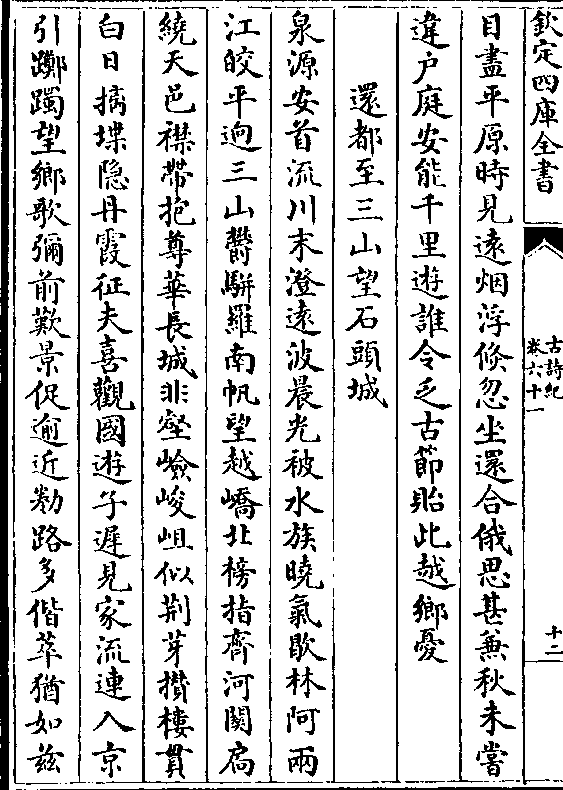 欽定四庫全書
古詩紀
卷六十一
十二
目盡平原時見遠烟浮倐忽坐還合俄思甚兼秋未嘗
違戸庭安能千里遊誰令乏古節貽此越鄉憂
還都至三山望石頭城
泉源安首流川末澄遠波晨光被水族曉氣歇林阿兩
江皎平逈三山鬱駢羅南帆望越嶠北榜指齊河關扃
繞天邑襟帶抱尊華長城非壑嶮峻岨似荆芽攅樓貫
白日摛堞隐丹霞征夫喜觀國遊子遲見家流連入京
引躑躅望鄉歌彌前歎景促逾近勌路多偕萃猶如兹